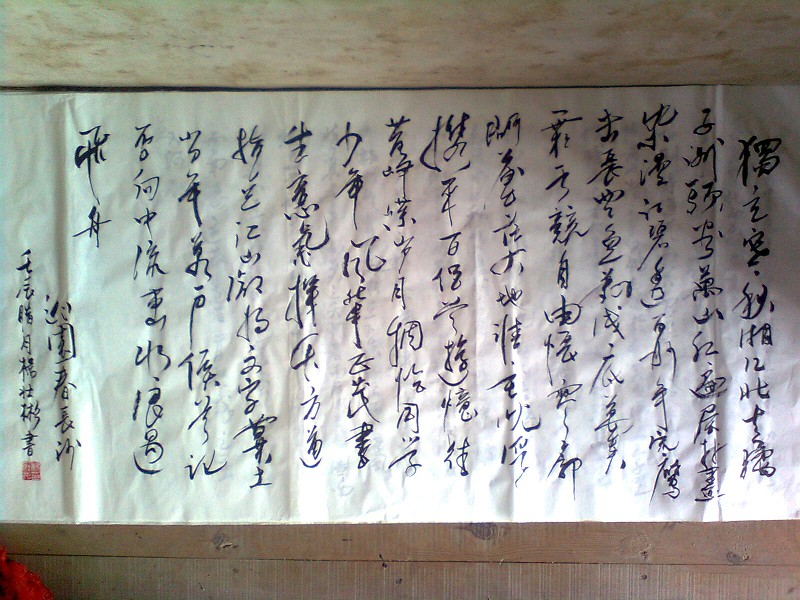 獨立寒秋湘江北去橘
子洲頭看萬山紅遍層林盡
染漫江碧透百舸爭流鷹
击長空魚翔浅底萬类
霜天競自由悵寥廓
問蒼茫大地誰主沉浮
攜来百侣曾遊憶往
昔崢嶸岁月稠恰同学
少年風華正茂書
生意氣揮斥方遒
指点江山激揚文字糞土
当年萬戶侯曾记
否向中流击水浪遏
飛舟
沁園春長沙
壬辰腊月楊壮彬書